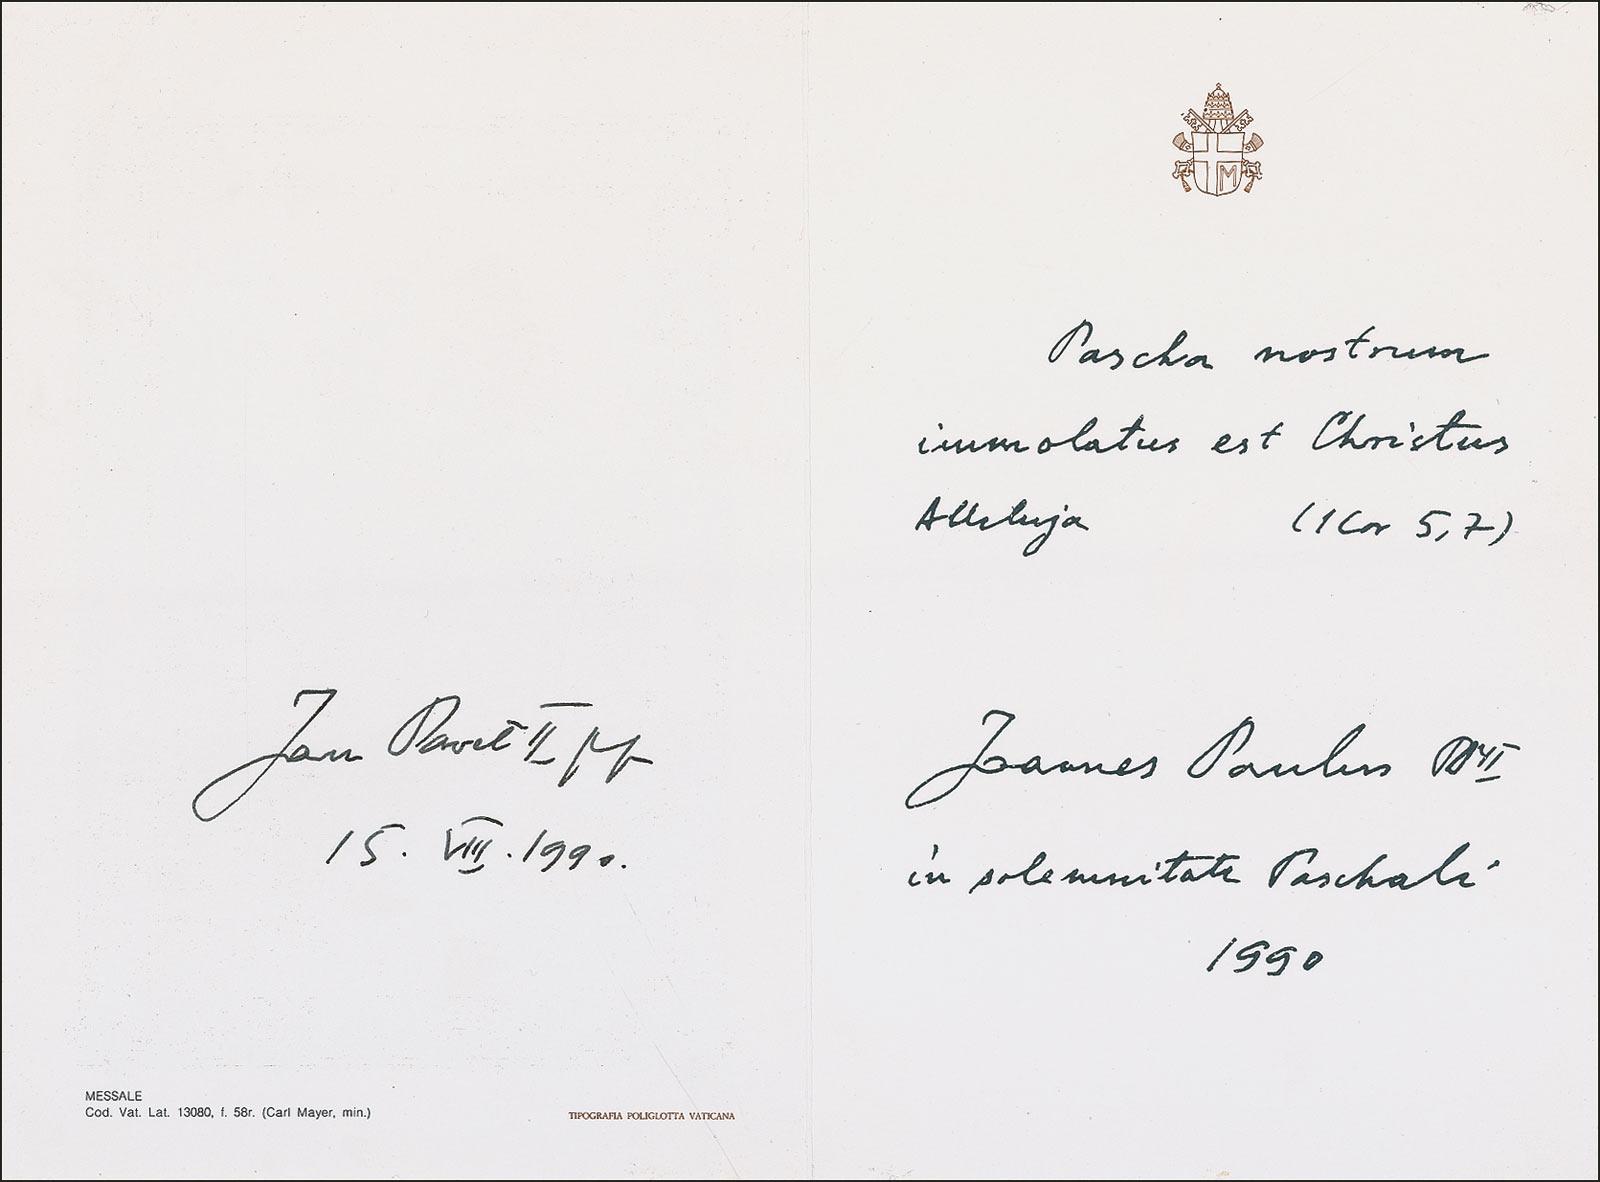 Jan Paweł II pp
15. VIII. 1990.
MESSALE
Cod. Vat. Lat. 13080, f. 58r. (Carl Mayer, min.)
TIPOGRAFIA POLIGLOTTA VATICANA
M
Pascha nostrum
immolatus est Christus
Alleluja (1 Cor 5,7)
Joannes Paulus PP II
in solemnitate Paschali
1990